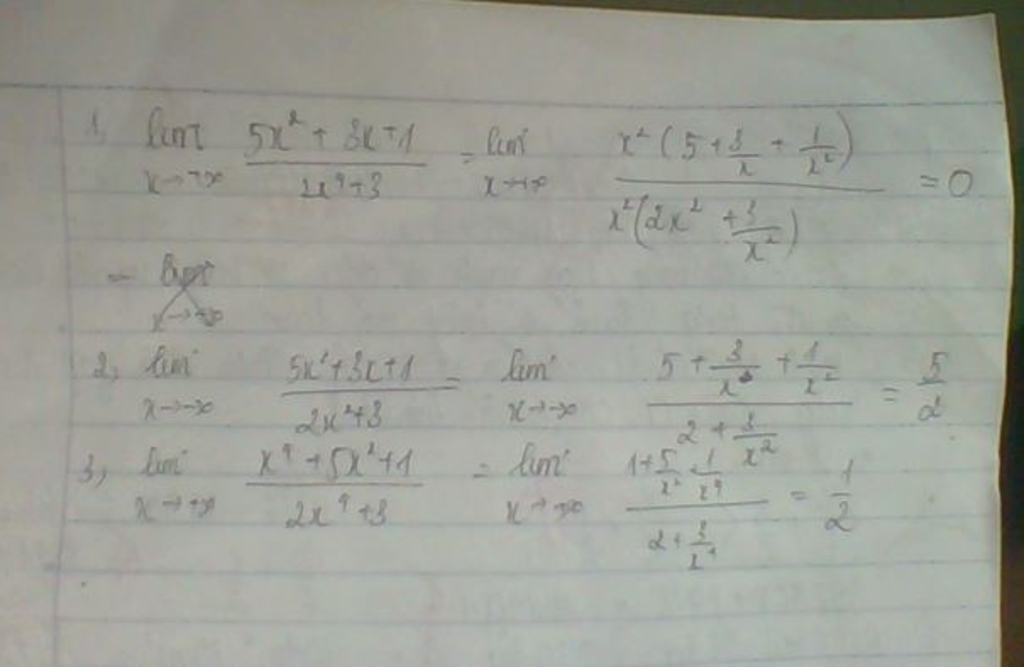 1, lim x→+∞ (5x² + 3x + 1)/(2x⁴ + 3) = lim x→+∞ (x² (5 + 3/x + 1/x²))/(x² (2x² + 3/x²)) = 0
= lim x→+∞
2, lim x→-∞ (5x² + 3x + 1)/(2x² + 3) = lim x→-∞ (5 + 3/x + 1/x²)/(2 + 3/x²) = 5/2
3, lim x→+∞ (x⁴ + 5x² + 1)/(2x⁴ + 3) = lim x→+∞ (1 + 5/x² + 1/x⁴)/(2 + 3/x⁴) = 1/2